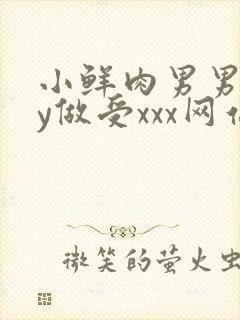 小鲜肉男男
y做受xxx网
微笑的萤火虫